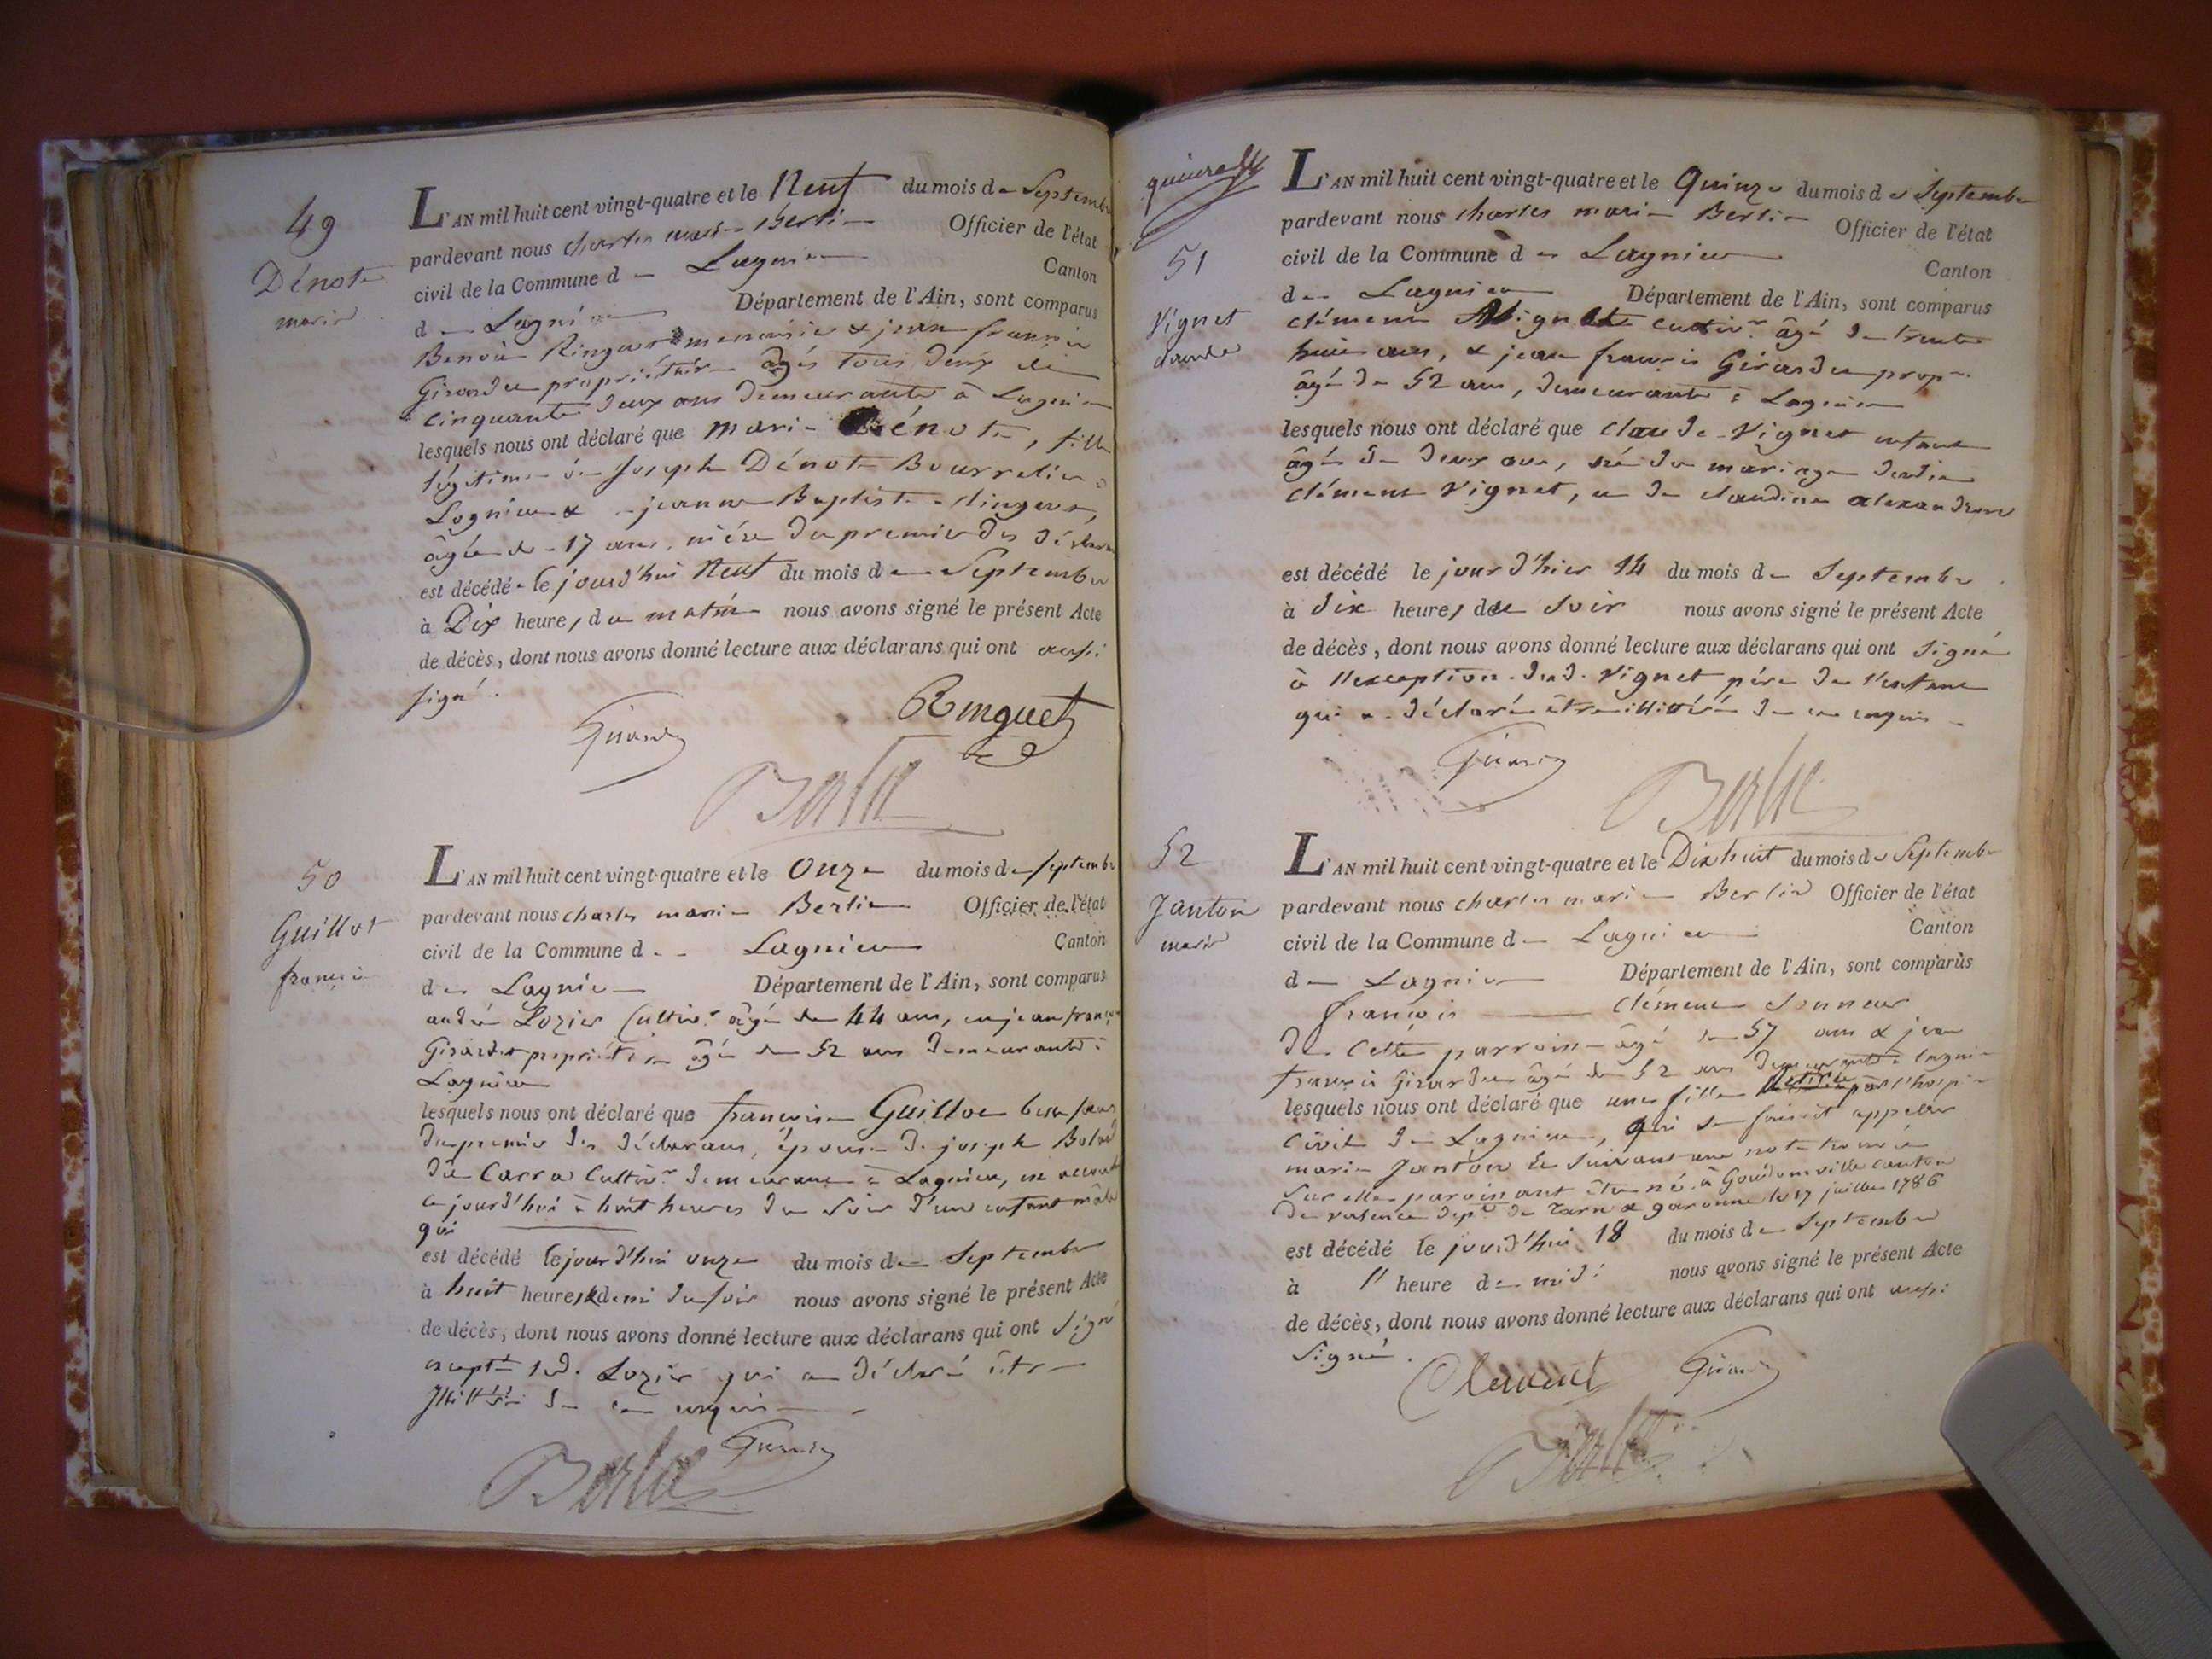 49
Dénote
marie
L'AN mil huit cent vingt-quatre et le Neuf du mois de Septembre
pardevant nous charles marie Berlie Officier de l'état
civil de la Commune de Lagnieu Canton
de Lagnieu Département de l'Ain, sont comparus
Benoit Ringuet menuisier & jean françois
Girardet propriétaire âgés tous deux de
cinquante deux ans demeurants à Lagnieu
lesquels nous ont déclaré que marie Dénote, fille
légitime de Joseph Dénote Bourrelier à
Lagnieu & jeanne Baptiste Ringuet,
âgée de 17 ans, niéce du premier des déclarans
est décédé le jourd'hui Neuf du mois de Septembre
à Dix heures du matin nous avons signé le présent Acte
de décès, dont nous avons donné lecture aux déclarans qui ont aussi
signé.
Ringuet
50
Guillot
françoise
L'AN mil huit cent vingt-quatre et le Onze du mois de septembre
pardevant nous charles marie Berlie Officier de l'état
civil de la Commune de Lagnieu Canton
de Lagnieu Département de l'Ain, sont comparus
andré Lozier Cultivr. âgé de 44 ans, et jean françois
Girardet propriétaire âgé de 52 ans demeurants à
Lagnieu
lesquels nous ont déclaré que françoise Guillot
du premier des déclarans, épouse de joseph
dit Carra Cultivr. demeurant à Lagnieu, est accouchée
ce jourd'hui à huit heures du soir d'un enfant mâle
qui
est décédé le jourd'hui onze du mois de Septembre
à huit heures & demi du soir nous avons signé le présent Acte
de décès, dont nous avons donné lecture aux déclarans qui ont signé
excepté led. Lozier qui a déclaré être
illittéré de ce enquis
quinze
51
Vignet
claude
L'AN mil huit cent vingt-quatre et le Quinze du mois de Septembre
pardevant nous charles marie Berlie Officier de l'état
civil de la Commune de Lagnieu Canton
de Lagnieu Département de l'Ain, sont comparus
clément Vignet cultivr. âgé de trente
huit ans, & jean françois Girardet propre.
âgé de 52 ans, demeurants à Lagnieu
lesquels nous ont déclaré que claude Vignet enfant
âgé de deux ans, né du mariage dudit
clément Vignet, et de claudine alexandrine
est décédé le jour d'hier 14 du mois de Septembre
à dix heures du soir nous avons signé le présent Acte
de décès, dont nous avons donné lecture aux déclarans qui ont signé
à l'exception dud. Vignet père de l'enfant
qui a déclaré être illittéré de ce enquis
52
Janton
marie
L'AN mil huit cent vingt-quatre et le Dix huit du mois de Septembre
pardevant nous charles marie Berlie Officier de l'état
civil de la Commune de Lagnieu Canton
de Lagnieu Département de l'Ain, sont comparus
françois clément sonneur
de cette parroisse âgé de 57 ans & jean
françois Girardet âgé de 52 ans demeurants à Lagnieu
lesquels nous ont déclaré que une fille par l'hospice
civil de Lagnieu, qui se faisoit appeler
marie Janton et suivant une note trouvée
sur elle paroissant être né à Goudourville canton
de valence dept. de Tarn & garonne le 17 juillet 1786
est décédé le jourd'hui 18 du mois de Septembre
à l' heure de midi nous avons signé le présent Acte
de décès, dont nous avons donné lecture aux déclarans qui ont aussi
signé.
Clement